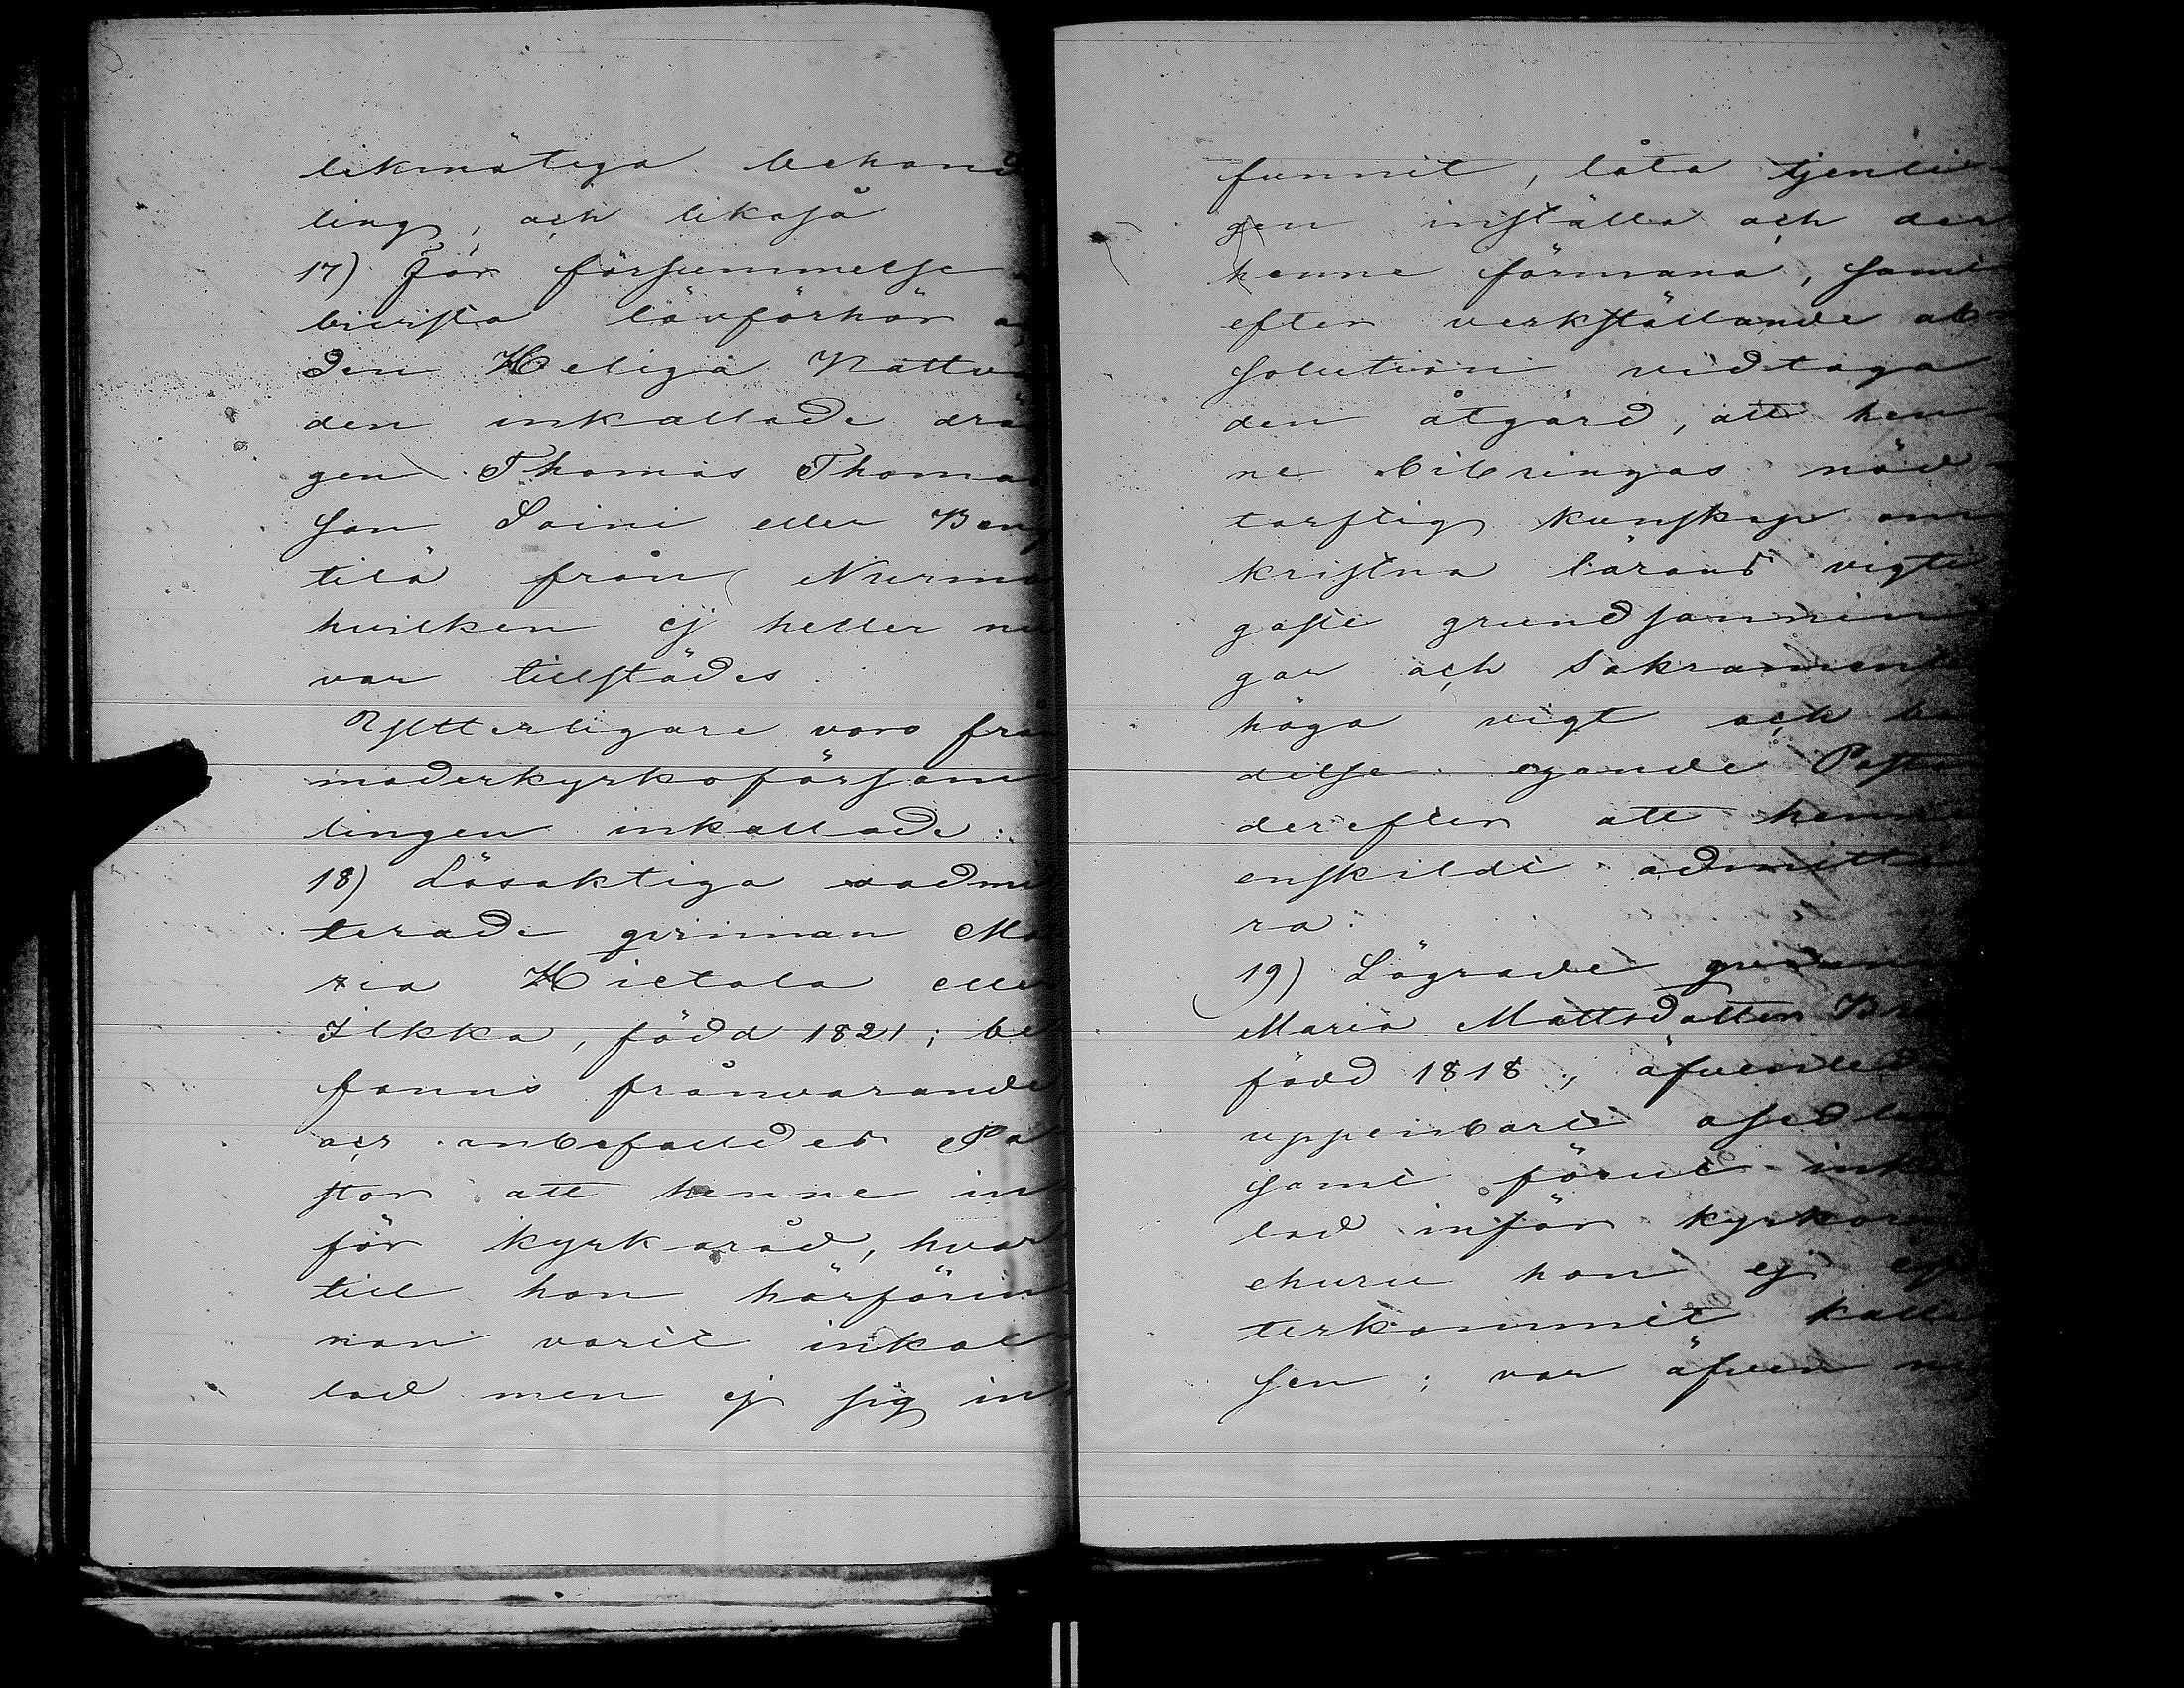 likmätiga behand
ling, och likaså
17) För försummelse
bivista läsförhör
den Heliga Nattva
den inkallade drä
gen Thomas Thoma
son Soini eller Beng
tilä från Nurmo
hvilken ej heller nu
var tillstädes.
Ytterligare voro frå
moderkyrkoförsam
lingen inkallade:
18) Lösaktiga oadmi
terade qvinnan Ma
ria Hietala eller
Ilkka, född 1821; be
fanns frånvarande,
och anbefalldes Pa
stor att henne in
för kyrkoråd, hvar
till hon härförin
nan varit inkal
lad men ej sig in
funnit, låta tjenli
gen inställa och der
henne förmana, samt
efter verkställande ab
solution vidtaga
den åtgärd, att hen
ne bibringas nöd
torftig kunskap om
kristna lärans vigti
gaste grundsannin
gar och Sakramente
höga vigt och be
delse egande Pasto
derefter att henne
enskildt admitte
ra.
19) Lägrade qvinnan
Maria Mattsdotter
född 1818, äfvenled
uppenbart
samt förut inkal
lad inför kyrkorå
ehuru hon ej ef
terkommit kallel
sen; var äfven nu